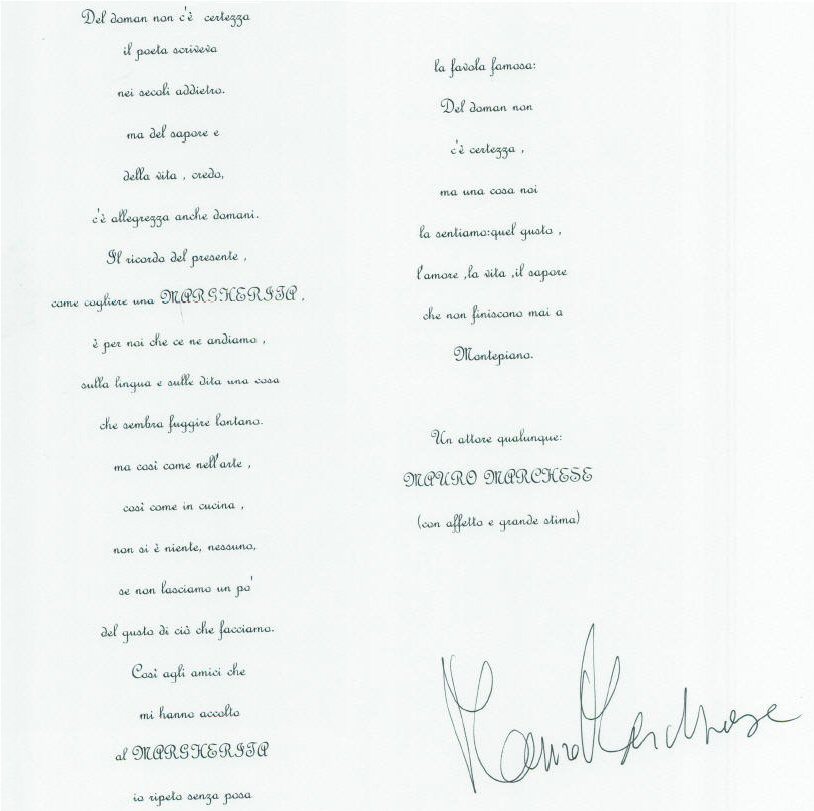 Del doman non c'è certezza
il poeta scriveva
nei secoli addietro.
ma del sapore e
della vita , credo,
c'è allegrezza anche domani.
Il ricordo del presente ,
come cogliere una MARGHERITA ,
è per noi che ce ne andiamo ,
sulla lingua e sulle dita una cosa
che sembra fuggire lontano.
ma così come nell'arte ,
così come in cucina ,
non si è niente, nessuno,
se non lasciamo un po'
del gusto di ciò che facciamo.
Così agli amici che
mi hanno accolto
al MARGHERITA
io ripeto senza posa
la favola famosa:
Del doman non
c'è certezza ,
ma una cosa noi
la sentiamo:quel gusto ,
l'amore ,la vita ,il sapore
che non finiscono mai a
Montepiano.
Un attore qualunque:
MAURO MARCHESE
(con affetto e grande stima)
Mauro Marchese